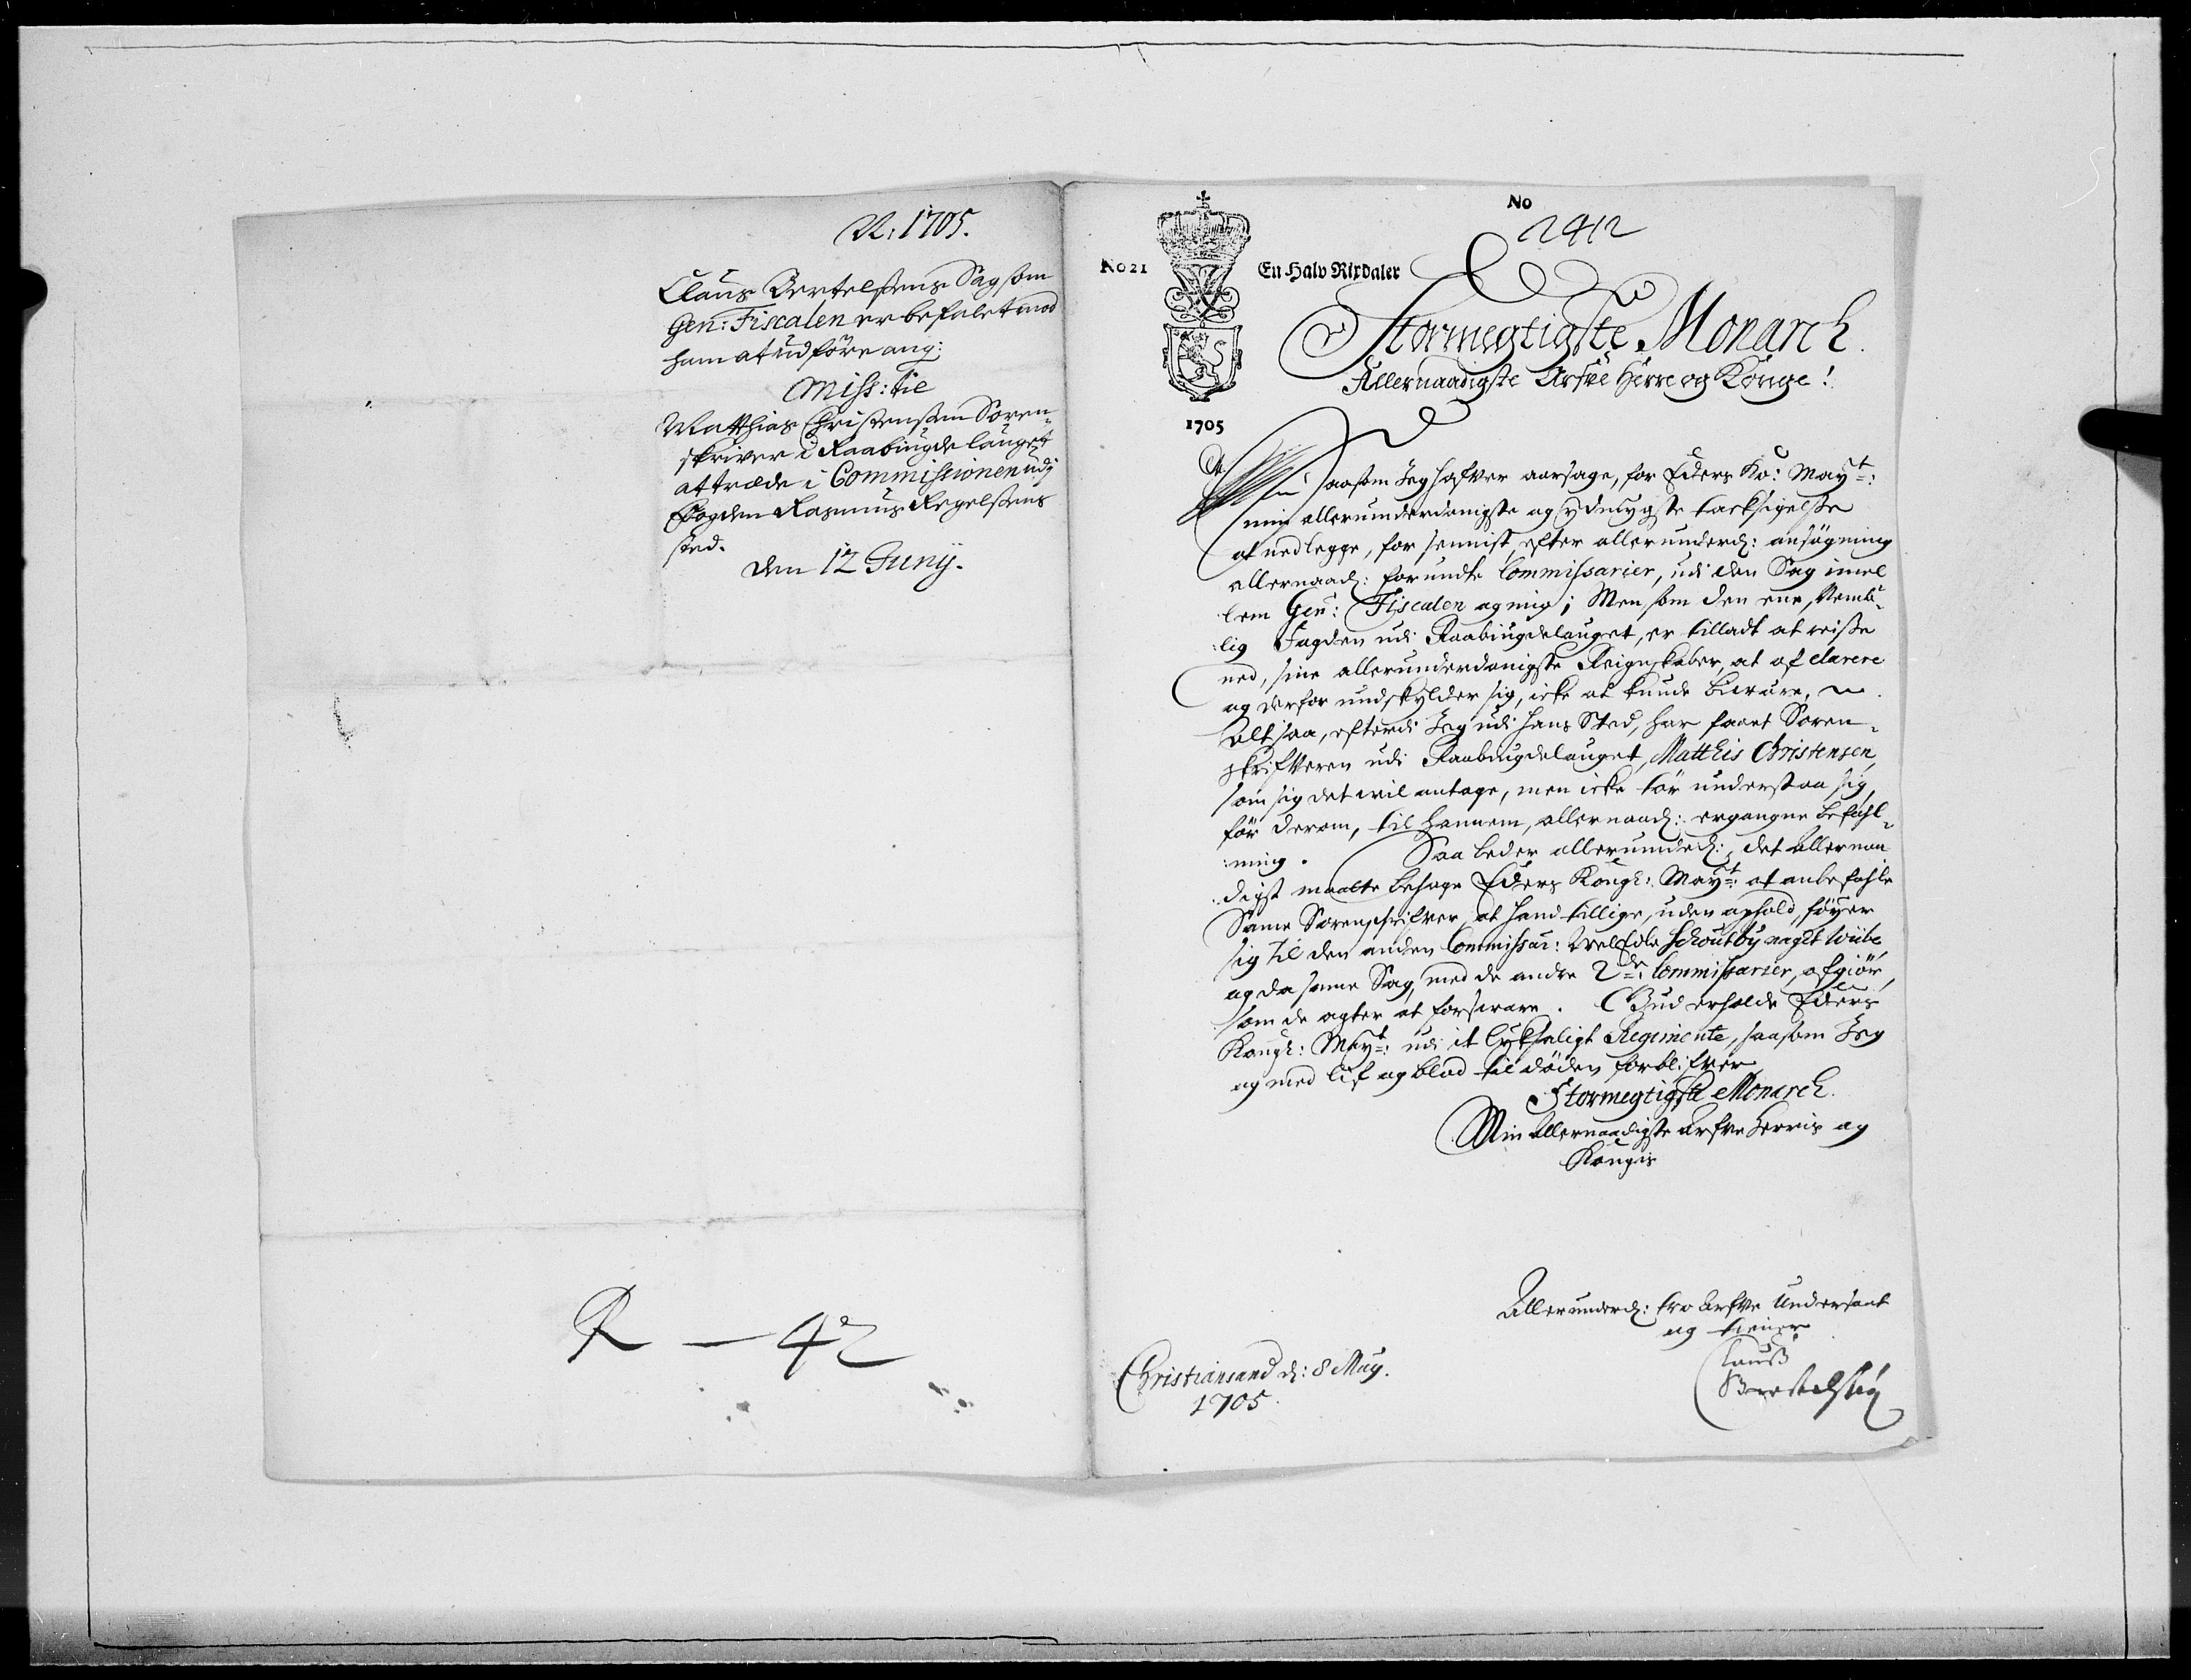 N: 1705.
Claus Bertelsens Sag som
Gen: Fiscalen er befalet mod
ham at udføre ang:
Miss: til
Matthias Christensen Soren-
skriver i Raabiugdelauget
at træde i Commissionen udj
Fogden Rasmus Regelsens
sted.
den 12 Junij.
R — 42
No
2412
No 21
En Halv Rixdaler
Stormegtigste Monarch.
Allernaadigste Arfve Herre og Konge!
1705
saasom Jeg hafver aarsage, for Eders Ko: Mayt:
min allerunderdanigste og ydmygste tachsigelse
at nedlegge, for sennist, efter allerunderd: ansøgning
allernaad: forundte Commissarier, udi den Sag imel
lem Gen: Fiscalen og mig; Men som den ene, Nemb-
:lig Fogden udi Raabiugdelauget, er tilladt at reise
ned, sine allerunderdanigste Reignskaber, at af clarere
og derfor undskylder sig, icke at kunde bievære,
Alt saa, efterdi Jeg udi hans Sted, har faaet Soren-
skrifveren udi Raabiugdelauget, Matthis Christensen,
som sig det vil antage, men icke tør understaa sig,
før derom, til hannem, allernaad: ergangne befahl-
:ning. Saa beder allerunderd:, det allernaa
digst maatte behage Eders Kongl: Mayt: at anbefahle
Samme Sorenschrifver, at hand tillige, uden ophold, føyer
sig til den anden Commissari: WelEdle Schoutbynagt Wibe
og da samme Sag, med de andre 2de Commissarier, afgiør,
som de agter at forsvare. Gud erholde Eders
Kongl: Mayt: udi et lyksaligt Regimente, saasom Jeg
og med lif og blod til døden forblifver
Stormegtigste Monarch.
Min Allernaadigste Arfve Herris og
Kongis
Allerunderd: tro Arfve Undersaat
og tiener
Clauß
Bertelsen
Christiansand d: 8 May.
1705.